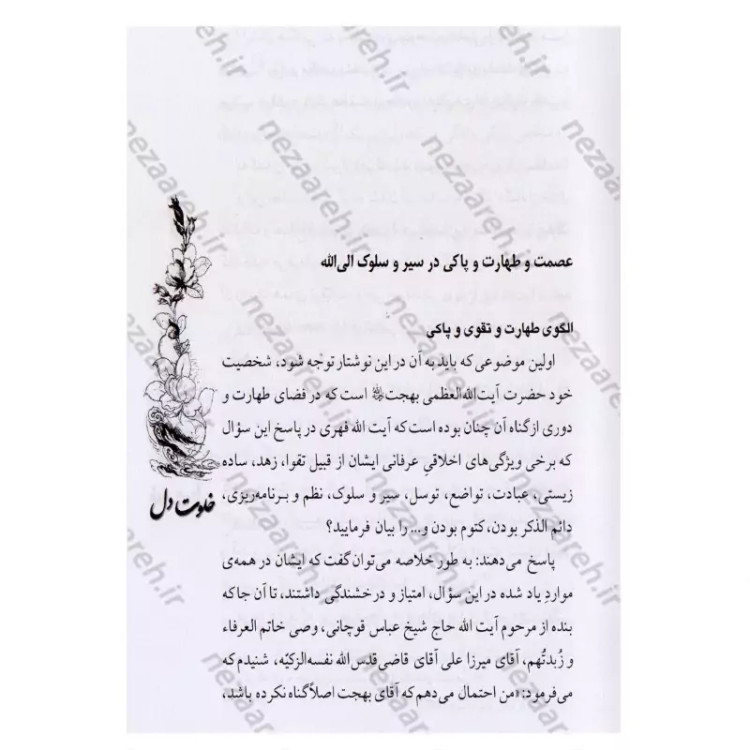 عصمت و طهارت و پاکی در سیر و سلوک الی‌الله
الگوی طهارت و تقوی و پاکی
اولین موضوعی که باید به آن در این نوشتار توجه شود، شخصیت
خود حضرت آیت‌الله‌العظمی بهجت است که در فضای طهارت و
دوری از گناه آن چنان بوده است که آیت الله قهری در پاسخ این سؤال
که برخی ویژگی‌های اخلاقیِ عرفانی ایشان از قبیل تقوا، زهد، ساده
زیستی، عبادت، تواضع، توسل، سیر و سلوک، نظم و برنامه‌ریزی،
دائم الذکر بودن، کتوم بودن و... را بیان فرمایید؟
پاسخ می‌دهند: به طور خلاصه می‌توان گفت که ایشان در همه‌ی
مواردِ یاد شده در این سؤال، امتیاز و درخشندگی داشتند، تا آن جا که
بنده از مرحوم آیت الله حاج شیخ عباس قوچانی، وصی خاتم العرفاء
و زُبدتُهم، آقای میرزا علی آقای قاضی قدس الله نفسه‌الزکیّه، شنیدم که
می‌فرمود: «من احتمال می‌دهم که آقای بهجت اصلاً گناه نکرده باشد،
خلوت دل
nezaareh.ir
nezaareh.ir
nezaareh.ir
nezaareh.ir
nezaareh.ir
nezaareh.ir
nezaareh.ir
nezaareh.ir
nezaareh.ir
nezaareh.ir